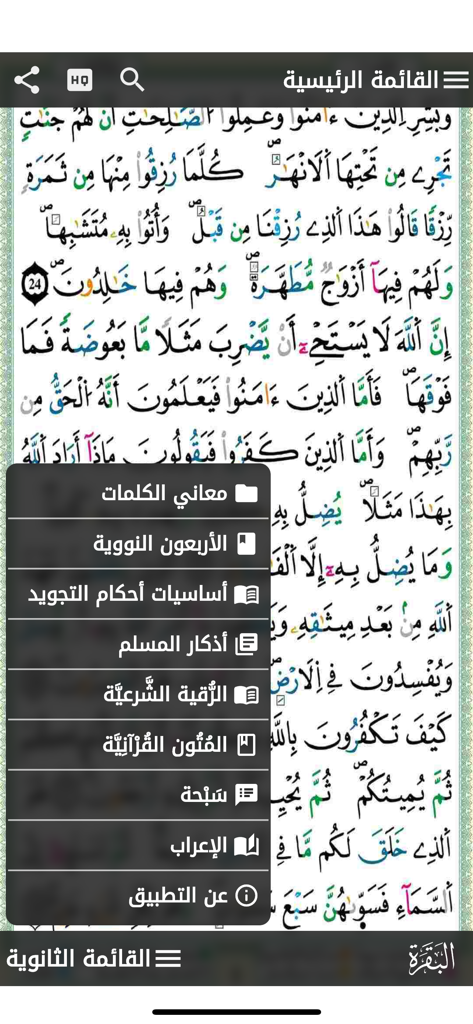 القائمة الرئيسية
HQ
وَبَشِّرِ اِ۬لذِينَ ءَامَنُواْ وَعَمِلُواْ اُ۬لصَّٰلِحَٰتِ أَنَّ لَهُمْ جَنَّٰتٖ
تَجْرِے مِن تَحْتِهَا اَ۬لَانْهَٰرُۖ كُلَّمَا رُزِقُواْ مِنْهَا مِن ثَمَرَةٖ
رِّزْقاٗ قَالُواْ هَٰذَا اَ۬لذِے رُزِقْنَا مِن قَبْلُۖ وَأُتُواْ بِهِۦ مُتَشَٰبِهاٗۖ
وَلَهُمْ فِيهَآ أَزْوَٰجٞ مُّطَهَّرَةٞۖ وَهُمْ فِيهَا خَٰلِدُونَۖ 24
إِنَّ اَ۬للَّهَ لَا يَسْتَحْيِۦٓ أَنْ يَّضْرِبَ مَثَلاٗ مَّا بَعُوضَةٗ فَمَا
فَوْقَهَاۖ فَأَمَّا اَ۬لذِينَ ءَامَنُواْ فَيَعْلَمُونَ أَنَّهُ اُ۬لْحَقُّ مِن
رَّبِّهِمْۖ وَأَمَّا اَ۬لذِينَ كَفَرُواْ فَيَقُولُونَ مَاذَآ أَرَادَ اَ۬للَّهُ
بِهَٰذَا مَثَلاٗۖ يُضِلُّ بِهِۦ
وَمَا يُضِلُّ بِهِۦٓ إِلَّا
اَ۬للَّهِ مِنۢ بَعْدِ مِيثَٰقِهِۦ
وَيُفْسِدُونَ فِے اِ۬لَارْضِۖ
كَيْفَ تَكْفُرُونَ بِاللَّهِ
ثُمَّ يُمِيتُكُمْۖ ثُمَّ
اَ۬لذِے خَلَقَ لَكُم مَّا فِے
اَ۬لسَّمَآءِ فَسَوَّىٰهُنَّ سَبْعَ
معاني الكلمات
الأربعون النووية
أساسيات أحكام التجويد
أذكار المسلم
الرُّقية الشَّرعيَّة
المُتُون القُرْآنِيَّة
سَبْحة
الإعراب
عن التطبيق
البَقَرَة
القائمة الثانوية